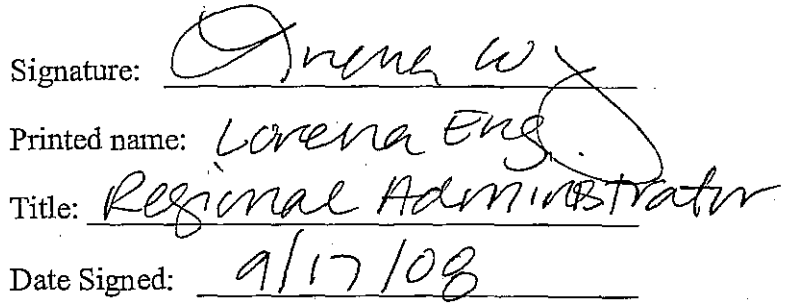 Signature:
Printed name: Lorena Eng.
Title: Regional Administrator
Date Signed: 9/17/08